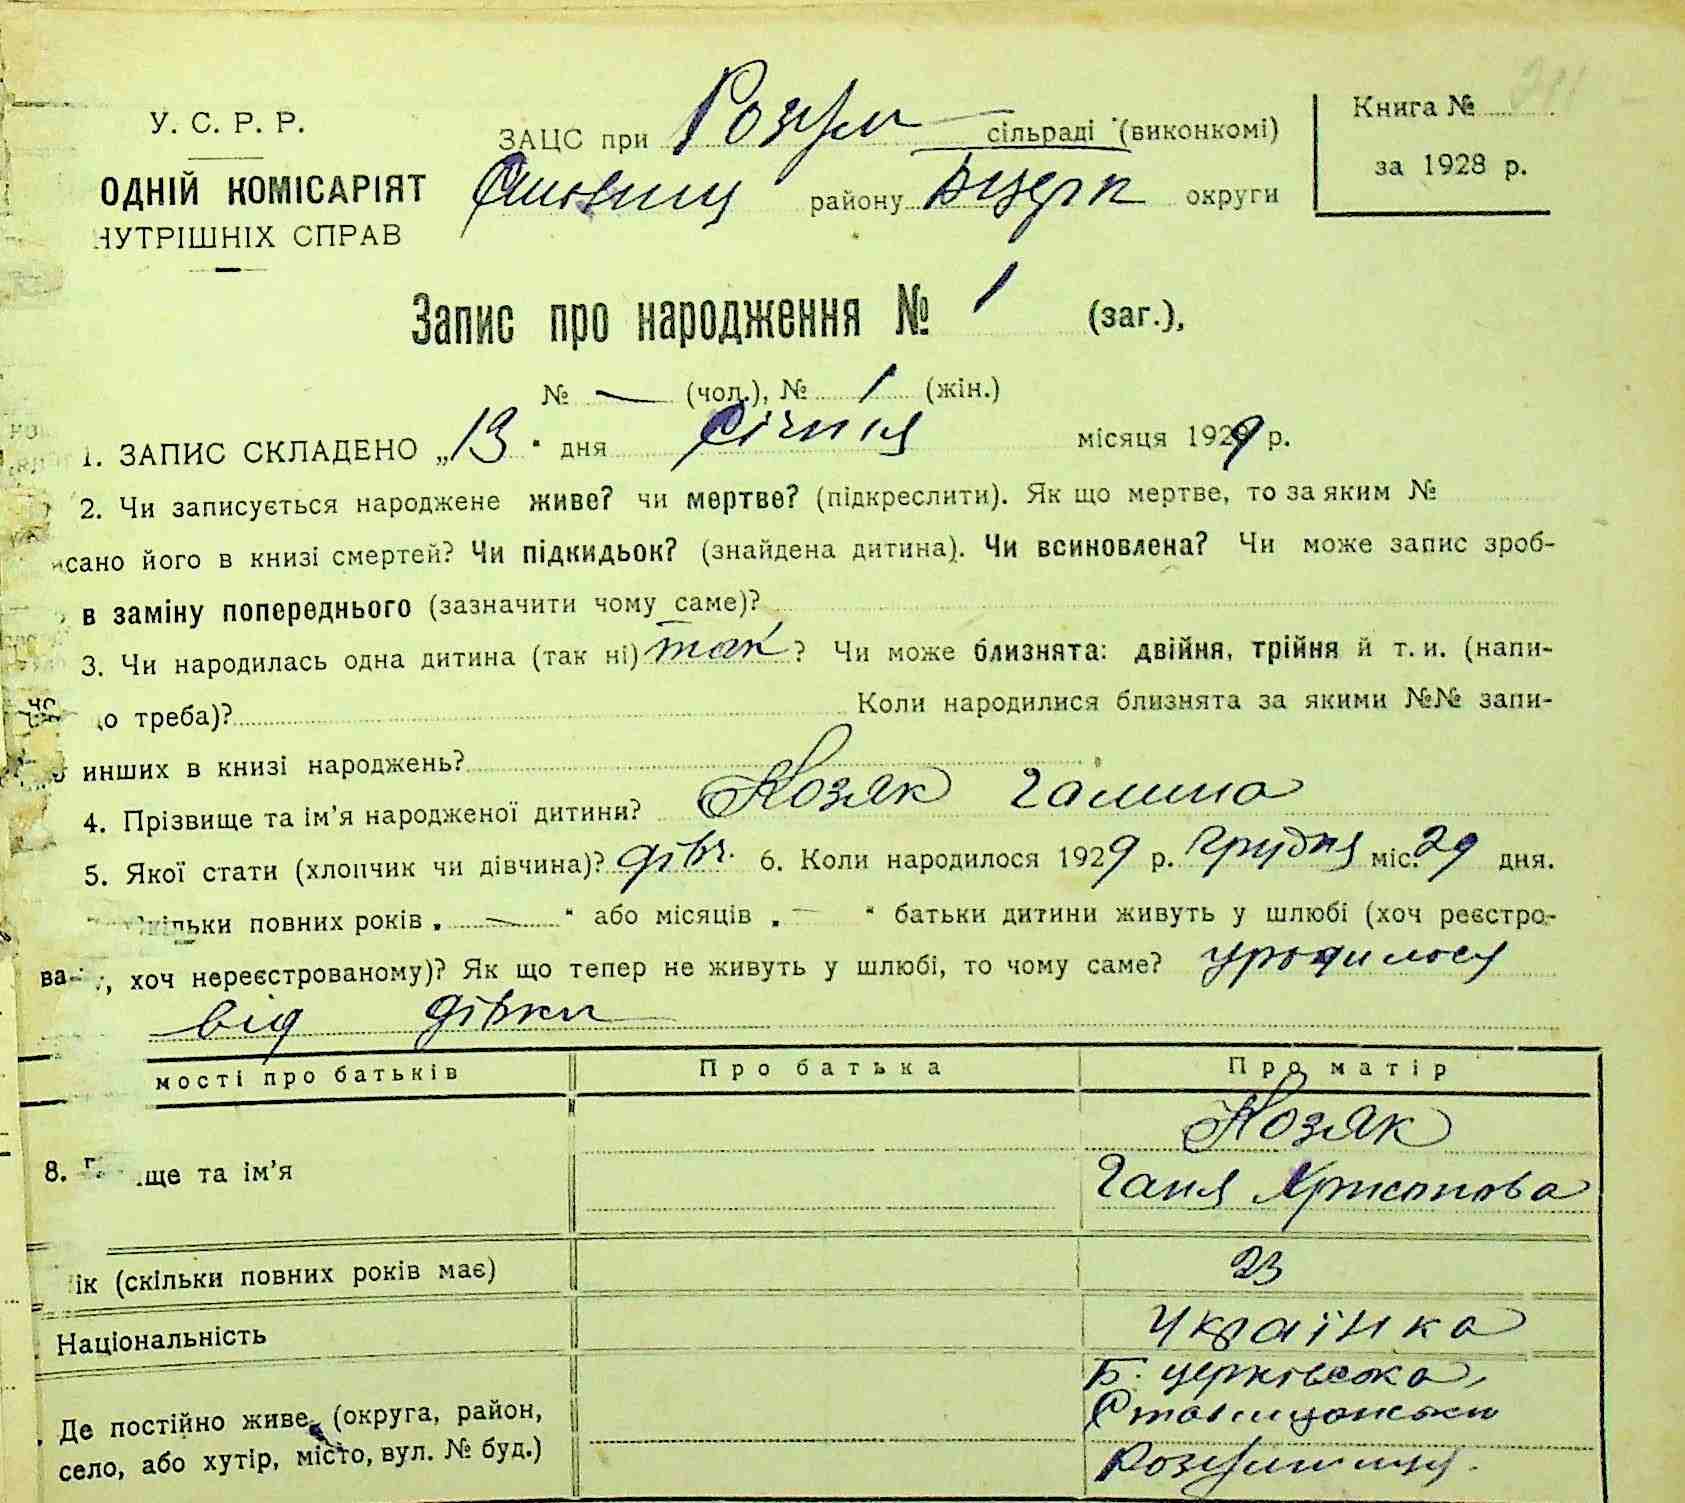 У. С. Р. Р.
ЗАЦС при Розум сільраді (виконкомі)
Книга № 311
ОДНІЙ КОМІСАРІЯТ
Ставищ району Б церк округи
за 1928 р.
НУТРІШНІХ СПРАВ
Запис про народження № 1 (заг.),
№ — (чол.), № 1 (жін.)
1. ЗАПИС СКЛАДЕНО „13" дня січня місяця 1929 р.
2. Чи записується народжене живе? чи мертве? (підкреслити). Як що мертве, то за яким №
исано його в книзі смертей? Чи підкидьок? (знайдена дитина). Чи всиновлена? Чи може запис зроб-
в заміну попереднього (зазначити чому саме)?
3. Чи народилась одна дитина (так ні) так ? Чи може близнята: двійня, трійня й т. и. (напи-
о треба)? Коли народилися близнята за якими №№ запи-
инших в книзі народжень?
4. Прізвище та ім'я народженої дитини? Козяк Галина
5. Якої стати (хлопчик чи дівчина)? дівч. 6. Коли народилося 1929 р. Грудня міс. 29 дня.
скільки повних років „ — " або місяців „ — " батьки дитини живуть у шлюбі (хоч реєстро-
ва , хоч нереєстрованому)? Як що тепер не живуть у шлюбі, то чому саме? уродилося
від дівки
мості про батьків Про батька Про матір
Козяк
8. ще та ім'я
Ганя Хрисонова
ік (скільки повних років має) 23
Національність Українка
Де постійно живе (округа, район,
село, або хутір, місто, вул. № буд.)
Б. церківська,
Ставищанський